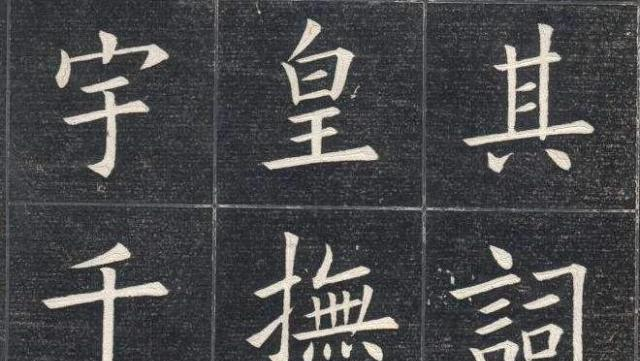 其詞
皇撫
宇千